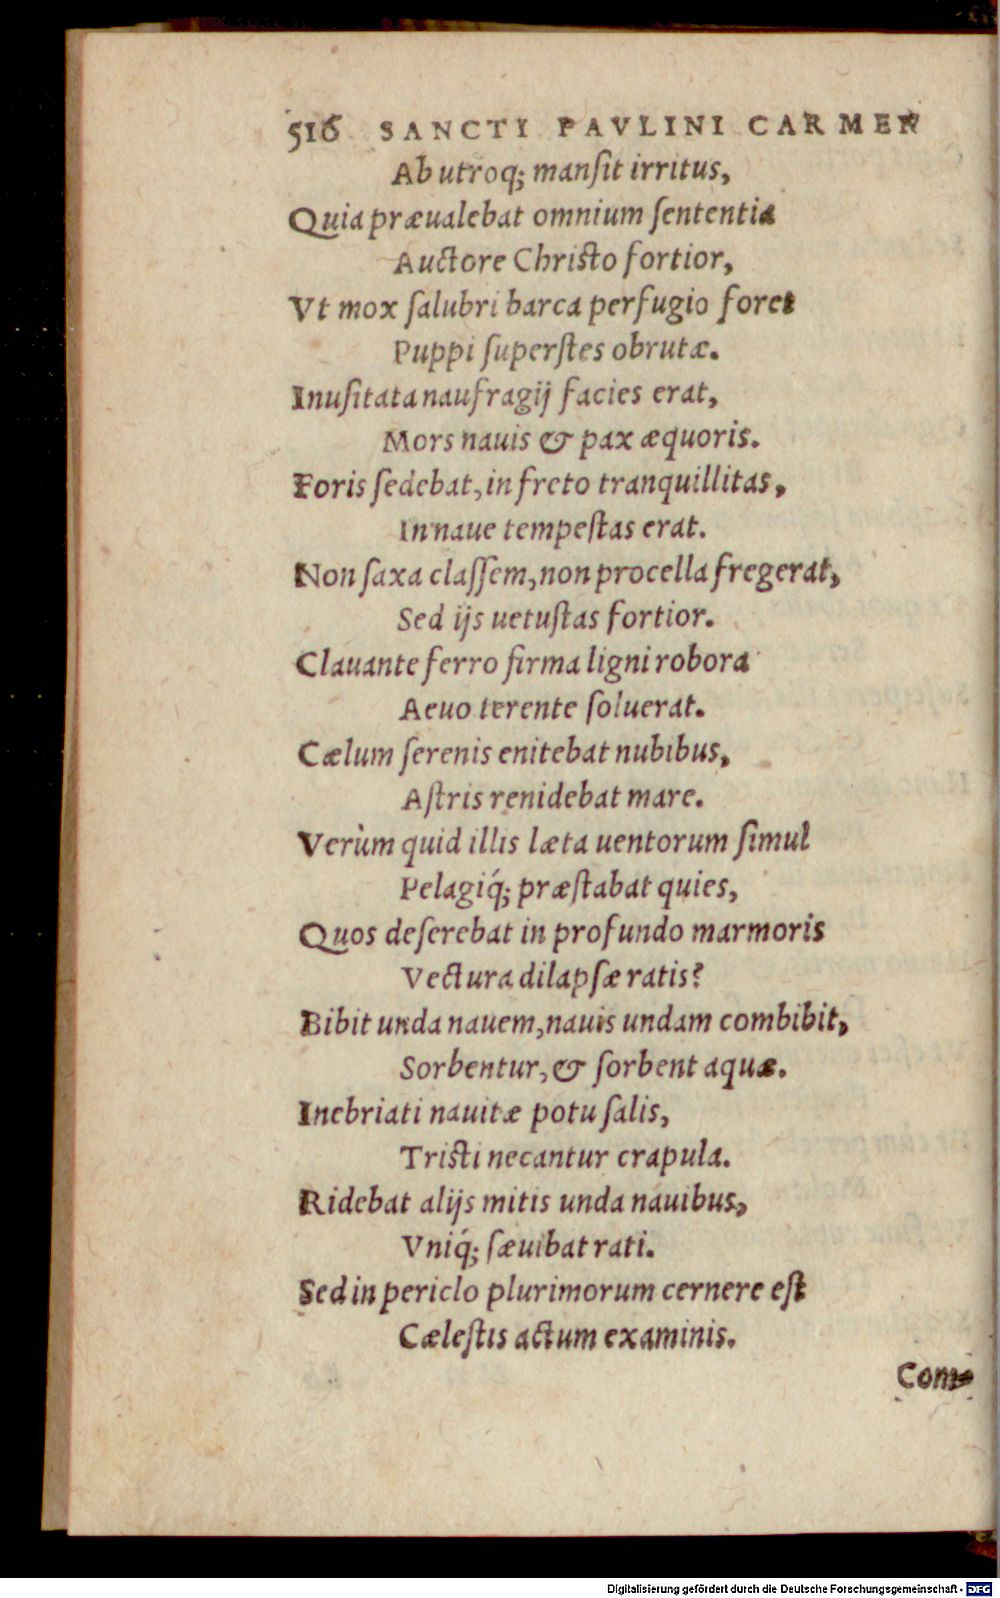 516 SANCTI PAVLINI CARMEN
Ab utroq; manſit irritus,
Quia præualebat omnium ſententia
Auctore Chriſto fortior,
Vt mox ſalubri barca perfugio foret
Puppi ſuperſtes obrutæ.
Inuſitata naufragij facies erat,
Mors nauis & pax æquoris.
Foris ſedebat, in freto tranquillitas,
In naue tempeſtas erat.
Non ſaxa claſſem, non procella fregerat,
Sed ijs uetuſtas fortior.
Clauante ferro firma ligni robora
Aeuo terente ſoluerat.
Cælum ſerenis enitebat nubibus,
Aſtris renidebat mare.
Verùm quid illis læta uentorum ſimul
Pelagiq́; præſtabat quies,
Quos deſerebat in profundo marmoris
Vectura dilapſæ ratis?
Bibit unda nauem, nauis undam combibit,
Sorbentur, & ſorbent aquæ.
Inebriati nauitæ potu ſalis,
Triſti necantur crapula.
Ridebat alijs mitis unda nauibus,
Vniq́; ſæuibat rati.
Sed in periclo plurimorum cernere eſt
Cæleſtis actum examinis.
Com-
Digitalisierung gefördert durch die Deutsche Forschungsgemeinschaft - DFG